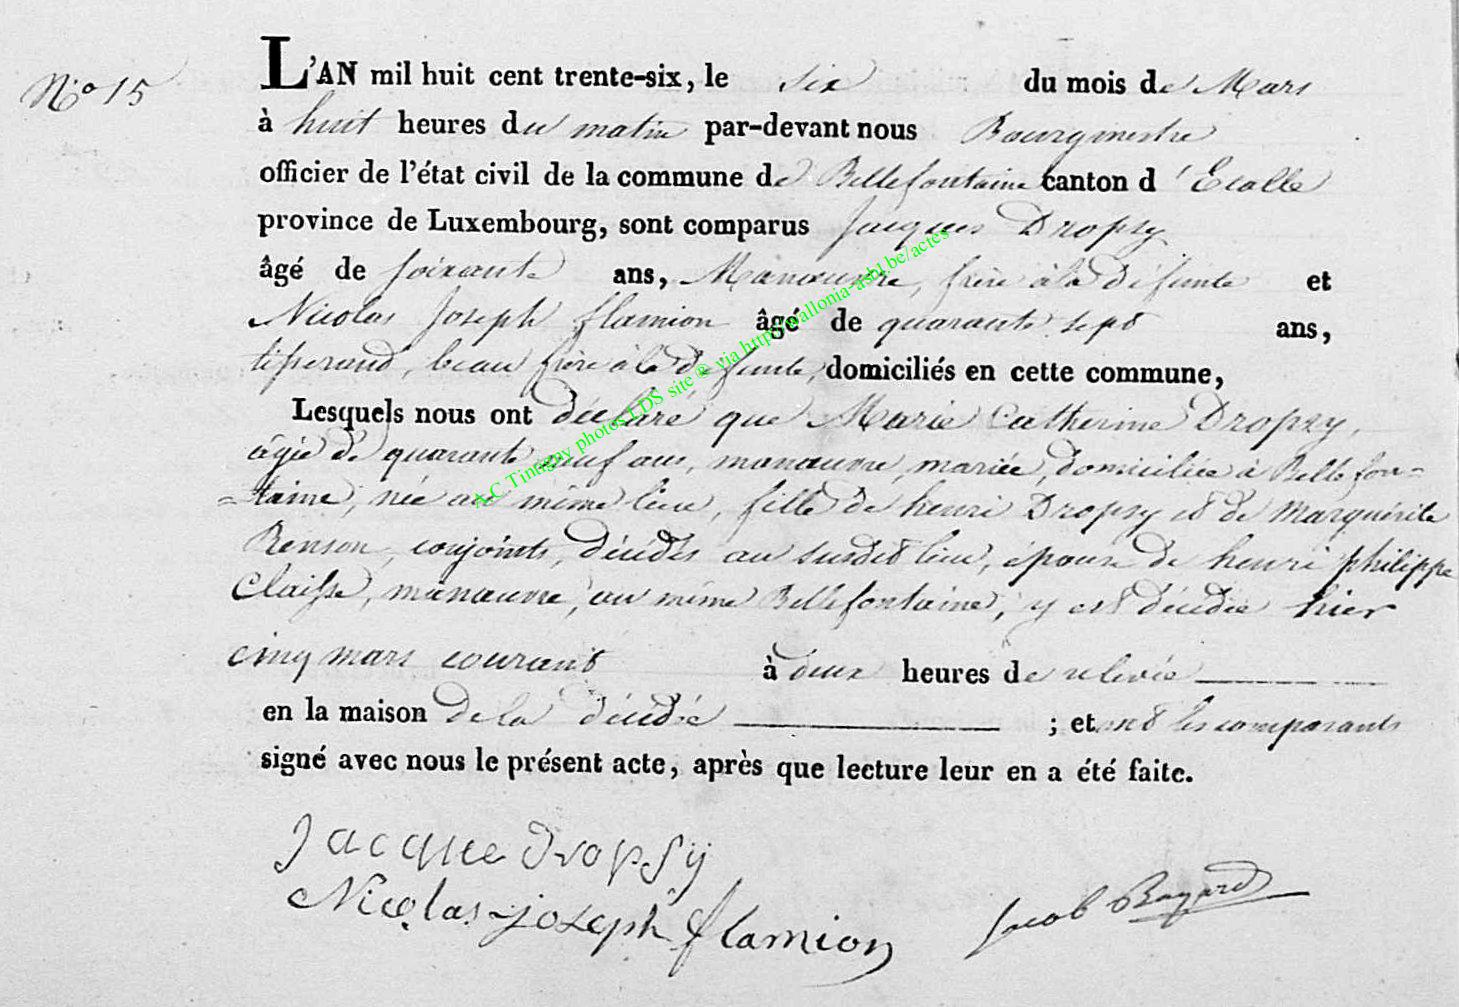 N.o 15
L'AN mil huit cent trente-six, le six du mois de Mars
à huit heures du matin par-devant nous Bourgmestre
officier de l'état civil de la commune de Bellefontaine canton d'Etalle
province de Luxembourg, sont comparus Jacques Dropsy
âgé de soixante ans, Manœuvre, frère à la défunte et
Nicolas Joseph flamion âgé de quarante sept ans,
tisserand, beau frère à la défunte, domiciliés en cette commune,
Lesquels nous ont déclaré que Marie Catherine Dropsy,
âgée de quarante neuf ans, manœuvre, mariée, domiciliée à Bellefon=
=taine, née au même lieu, fille de henri Dropsy et de Marguérite
Renson, conjoints, décédés au susdit lieu, épouse de henri philippe
Claisse, manœuvre, au même Bellefontaine, y est décédée hier
cinq mars courant à deux heures de relevée
en la maison de la décédée ; et ont les comparants
signé avec nous le présent acte, après que lecture leur en a été faite.
Jacque Dropsy
Nicolas joseph flamion
Jacob Bayard
A.C Tintigny photos LDS site @ via http://wallonia-asbl.be/actes